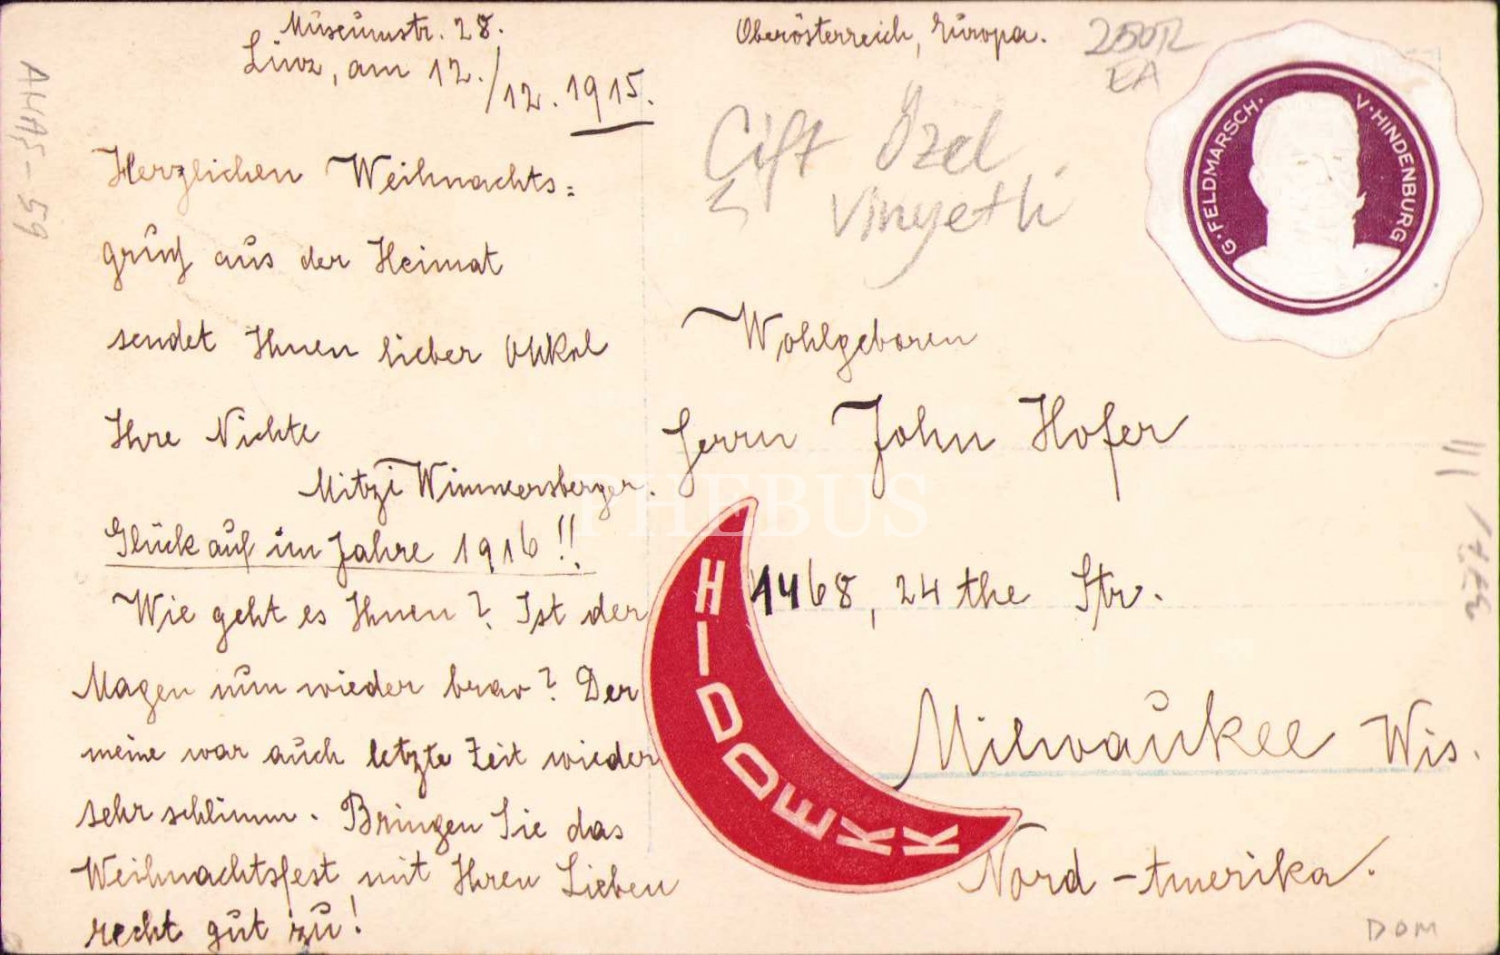 Museumstr. 28.
Linz, am 12./12. 1915.
Herzlichen Weihnachts=
gruß aus der Heimat
sendet Ihnen lieber Onkel
Ihre Nichte
Mitzi Wimmersberger.
Glück auf im Jahre 1916!!
Wie geht es Ihnen? Ist der
Magen nun wieder brav? Der
meine war auch letzte Zeit wieder
sehr schlimm. Bringen Sie das
Weihnachtsfest mit Ihren Lieben
recht gut zu!
Oberösterreich, Europa.
250TL
EA
Çift Özel
Vinyetli
G. FELDMARSCH. V. HINDENBURG
Wohlgeboren
Herrn John Hofer
1468, 24 the Str.
Milwaukee Wis.
Nord-Amerika.
HIDDEKK
PHEBUS
AHAŞ-59
DOM